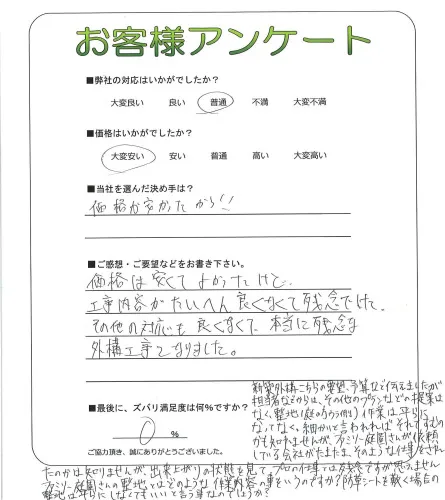 お客様アンケート
■弊社の対応はいかがでしたか?
大変良い 良い 普通 不満 大変不満
■価格はいかがでしたか?
大変安い 安い 普通 高い 大変高い
■当社を選んだ決め手は?
価格が安かったから!!
■ご感想・ご要望などをお書き下さい。
価格は安くてよかったけど、
工事内容がたいへん良くなくて残念でした。
その他の対応も良くなくて、本当に残念な
外構工事となりました。
■最後に、ズバリ満足度は何%ですか?
0 %
ご協力頂き、誠にありがとうございました。
新築外構こちらの要望、予算など伝えましたが
担当者などからは、その他のプランなどの提案は
なく、整地(庭の方・ウラ側)作業は平らに
なってなく、細かいと言われればそれですむの
かも知れませんが、ファミリー庭園さんが依頼
している会社がたまたま、そのような仕事をされ
たのかは知りませんが、出来上がりの状態を見て、プロの仕事では残念ですが思えません
ファミリー庭園さんの整地ではどのような作業内容の事をいうのですか?防草シートを敷く場合の
整地は平らにしなくてもいいと言う事なのでしょうか?